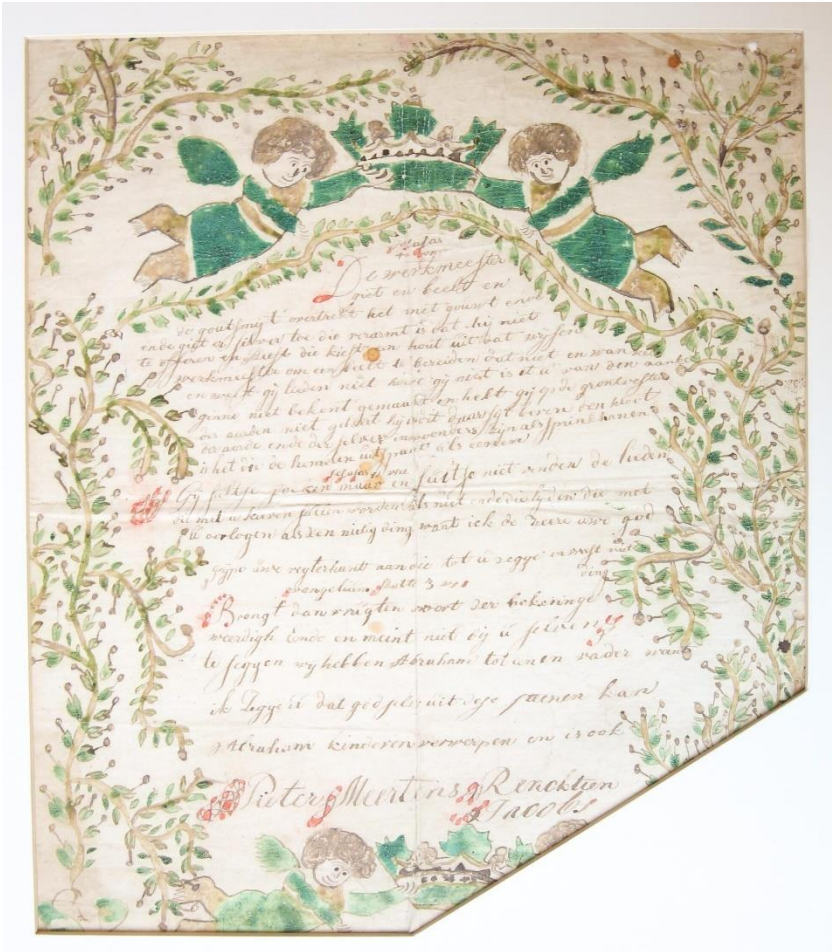 De werkmeester
giet en beelt en
de goutsmit overtreckt het met gout en
ende giet er silver toe die verarmt is dat hij niet
te offeren en heeft die kiest een hout uit dat wijsen
werkmeester om een beelt te bereiden dat niet en wankel
en weest gij lieden niet hoort gij niet is het u van den aanbe
ginne niet bekent gemaakt en hebt gij op de grontvesten
der aarden niet gelet hij sit daar
de aarde ende derselver inwoonders zijn als sprinkhanen
is het in de hemelen uitspant als eenen
Gij sultse soeken maar en sultse niet vinden de lieden
die met u kijven sullen worden als niet ende die lieden die met
u oorlogen als een nietig ding want ick de heere uwe god
grijpe uwe regterhant aan die tot u segge en vreest niet
evangelium Matte 3
Brengt dan vrugten voort der bekeringe
weerdigh ende en meint niet bij u selven
te seggen wij hebben Abraham tot eenen vader want
ik segge u dat god selfs uit dese steenen kan
Abraham kinderen verwerpen en is ook
Pieter Meertens Rencktien
Jacobs